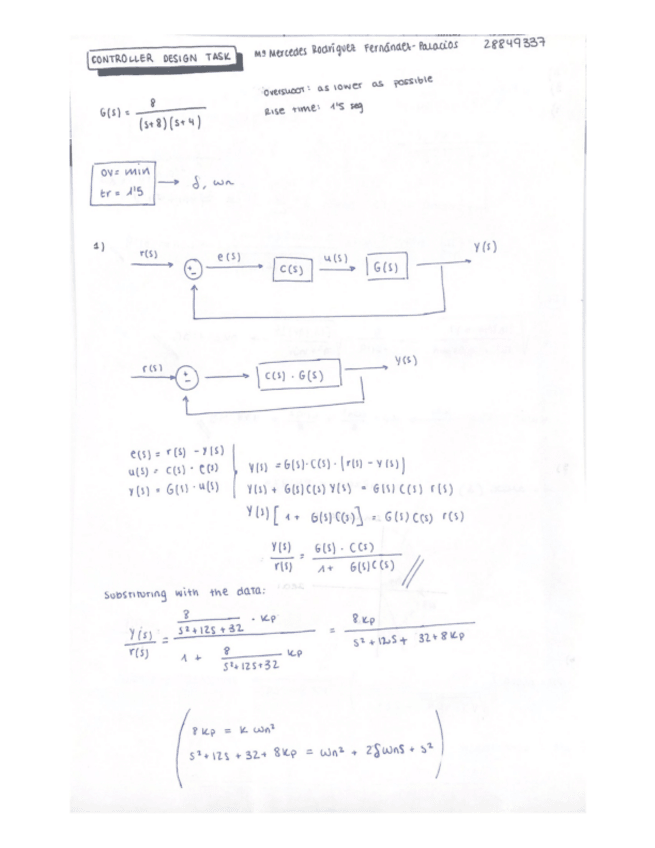 CONTROLLER DESIGN TASK
Mª Mercedes Rodríguez Fernández-Palacios 28849337
G(s) = 8 / (s+8)(s+4)
Overshoot: as lower as possible
Rise time: 1'5 seg
ov = min
tr = 1'5
→ δ, wn
1)
r(s) + - e(s) C(s) u(s) G(s) Y(s)
r(s) + - C(s) · G(s) Y(s)
e(s) = r(s) - y(s)
u(s) = C(s) · e(s)
Y(s) = G(s) · u(s)
Y(s) = G(s)·C(s)·[r(s) - Y(s)]
Y(s) + G(s)C(s)Y(s) = G(s)C(s) r(s)
Y(s)[1 + G(s)C(s)] = G(s)C(s) r(s)
Y(s)/r(s) = G(s)·C(s) / 1 + G(s)C(s) //
Substituring with the data:
Y(s)/r(s) = (8/(s²+12s+32) · Kp) / (1 + 8/(s²+12s+32) Kp) = 8Kp / (s²+12s+ 32+8Kp)
8Kp = K wn²
s²+12s+32+8Kp = wn² + 2δwns + s²